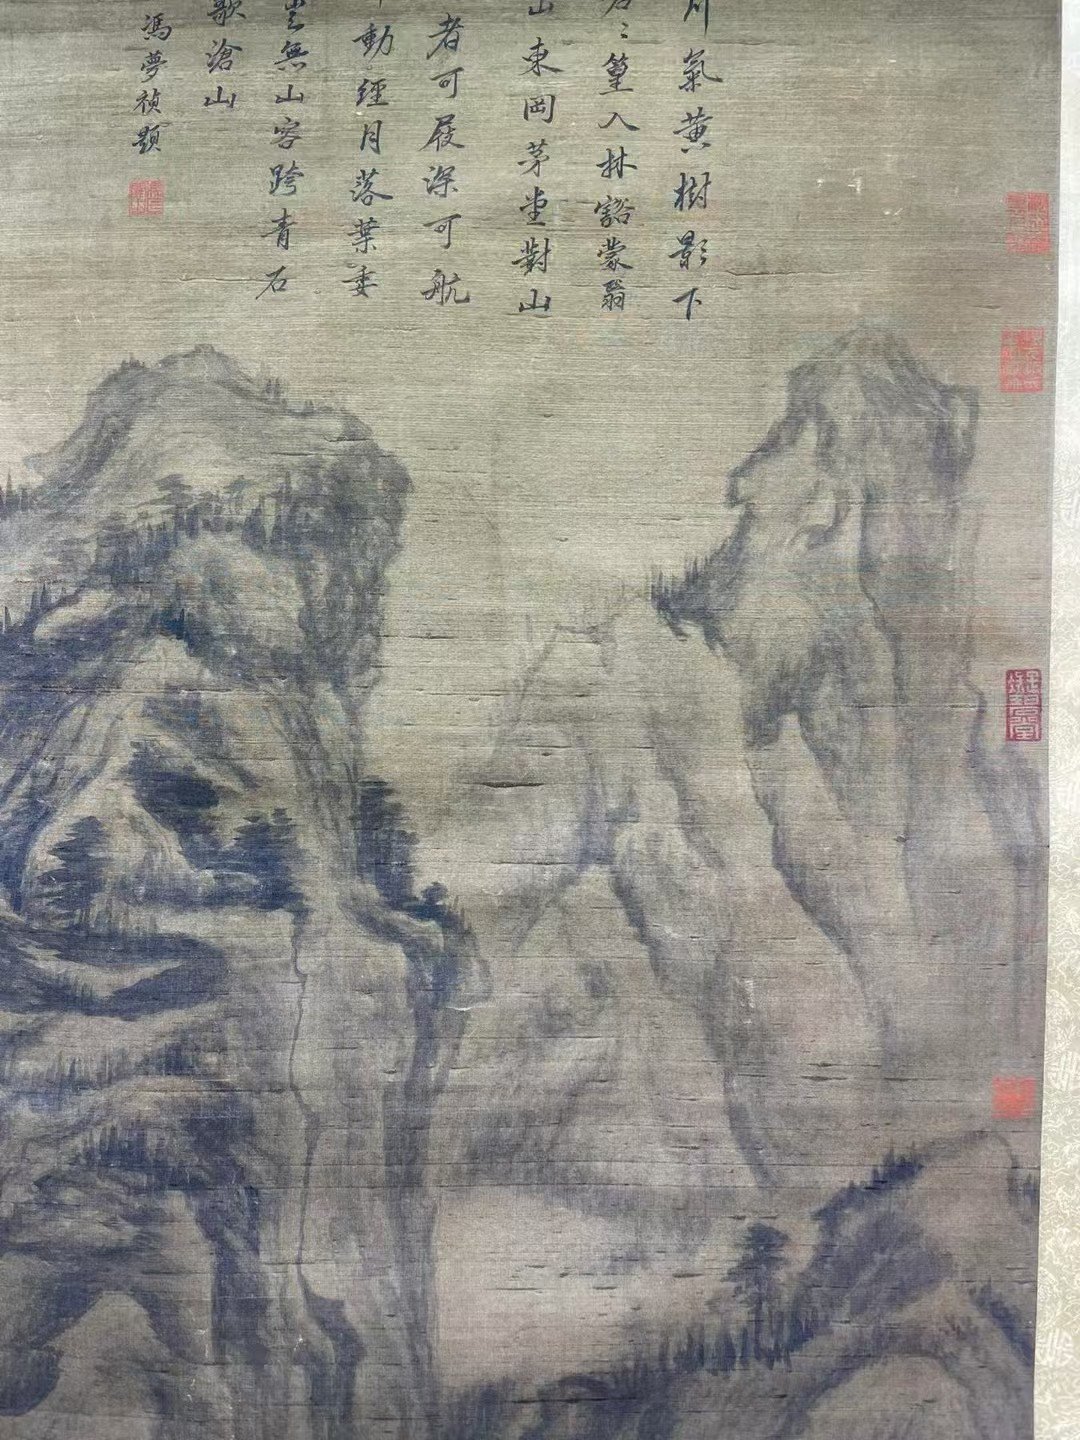 氣黃樹影下
篁入林豁蒙翁
山東岡茅堂對山
者可屐深可航
動經月落葉委
無山容跨青石
歌滄山
馮夢禎題